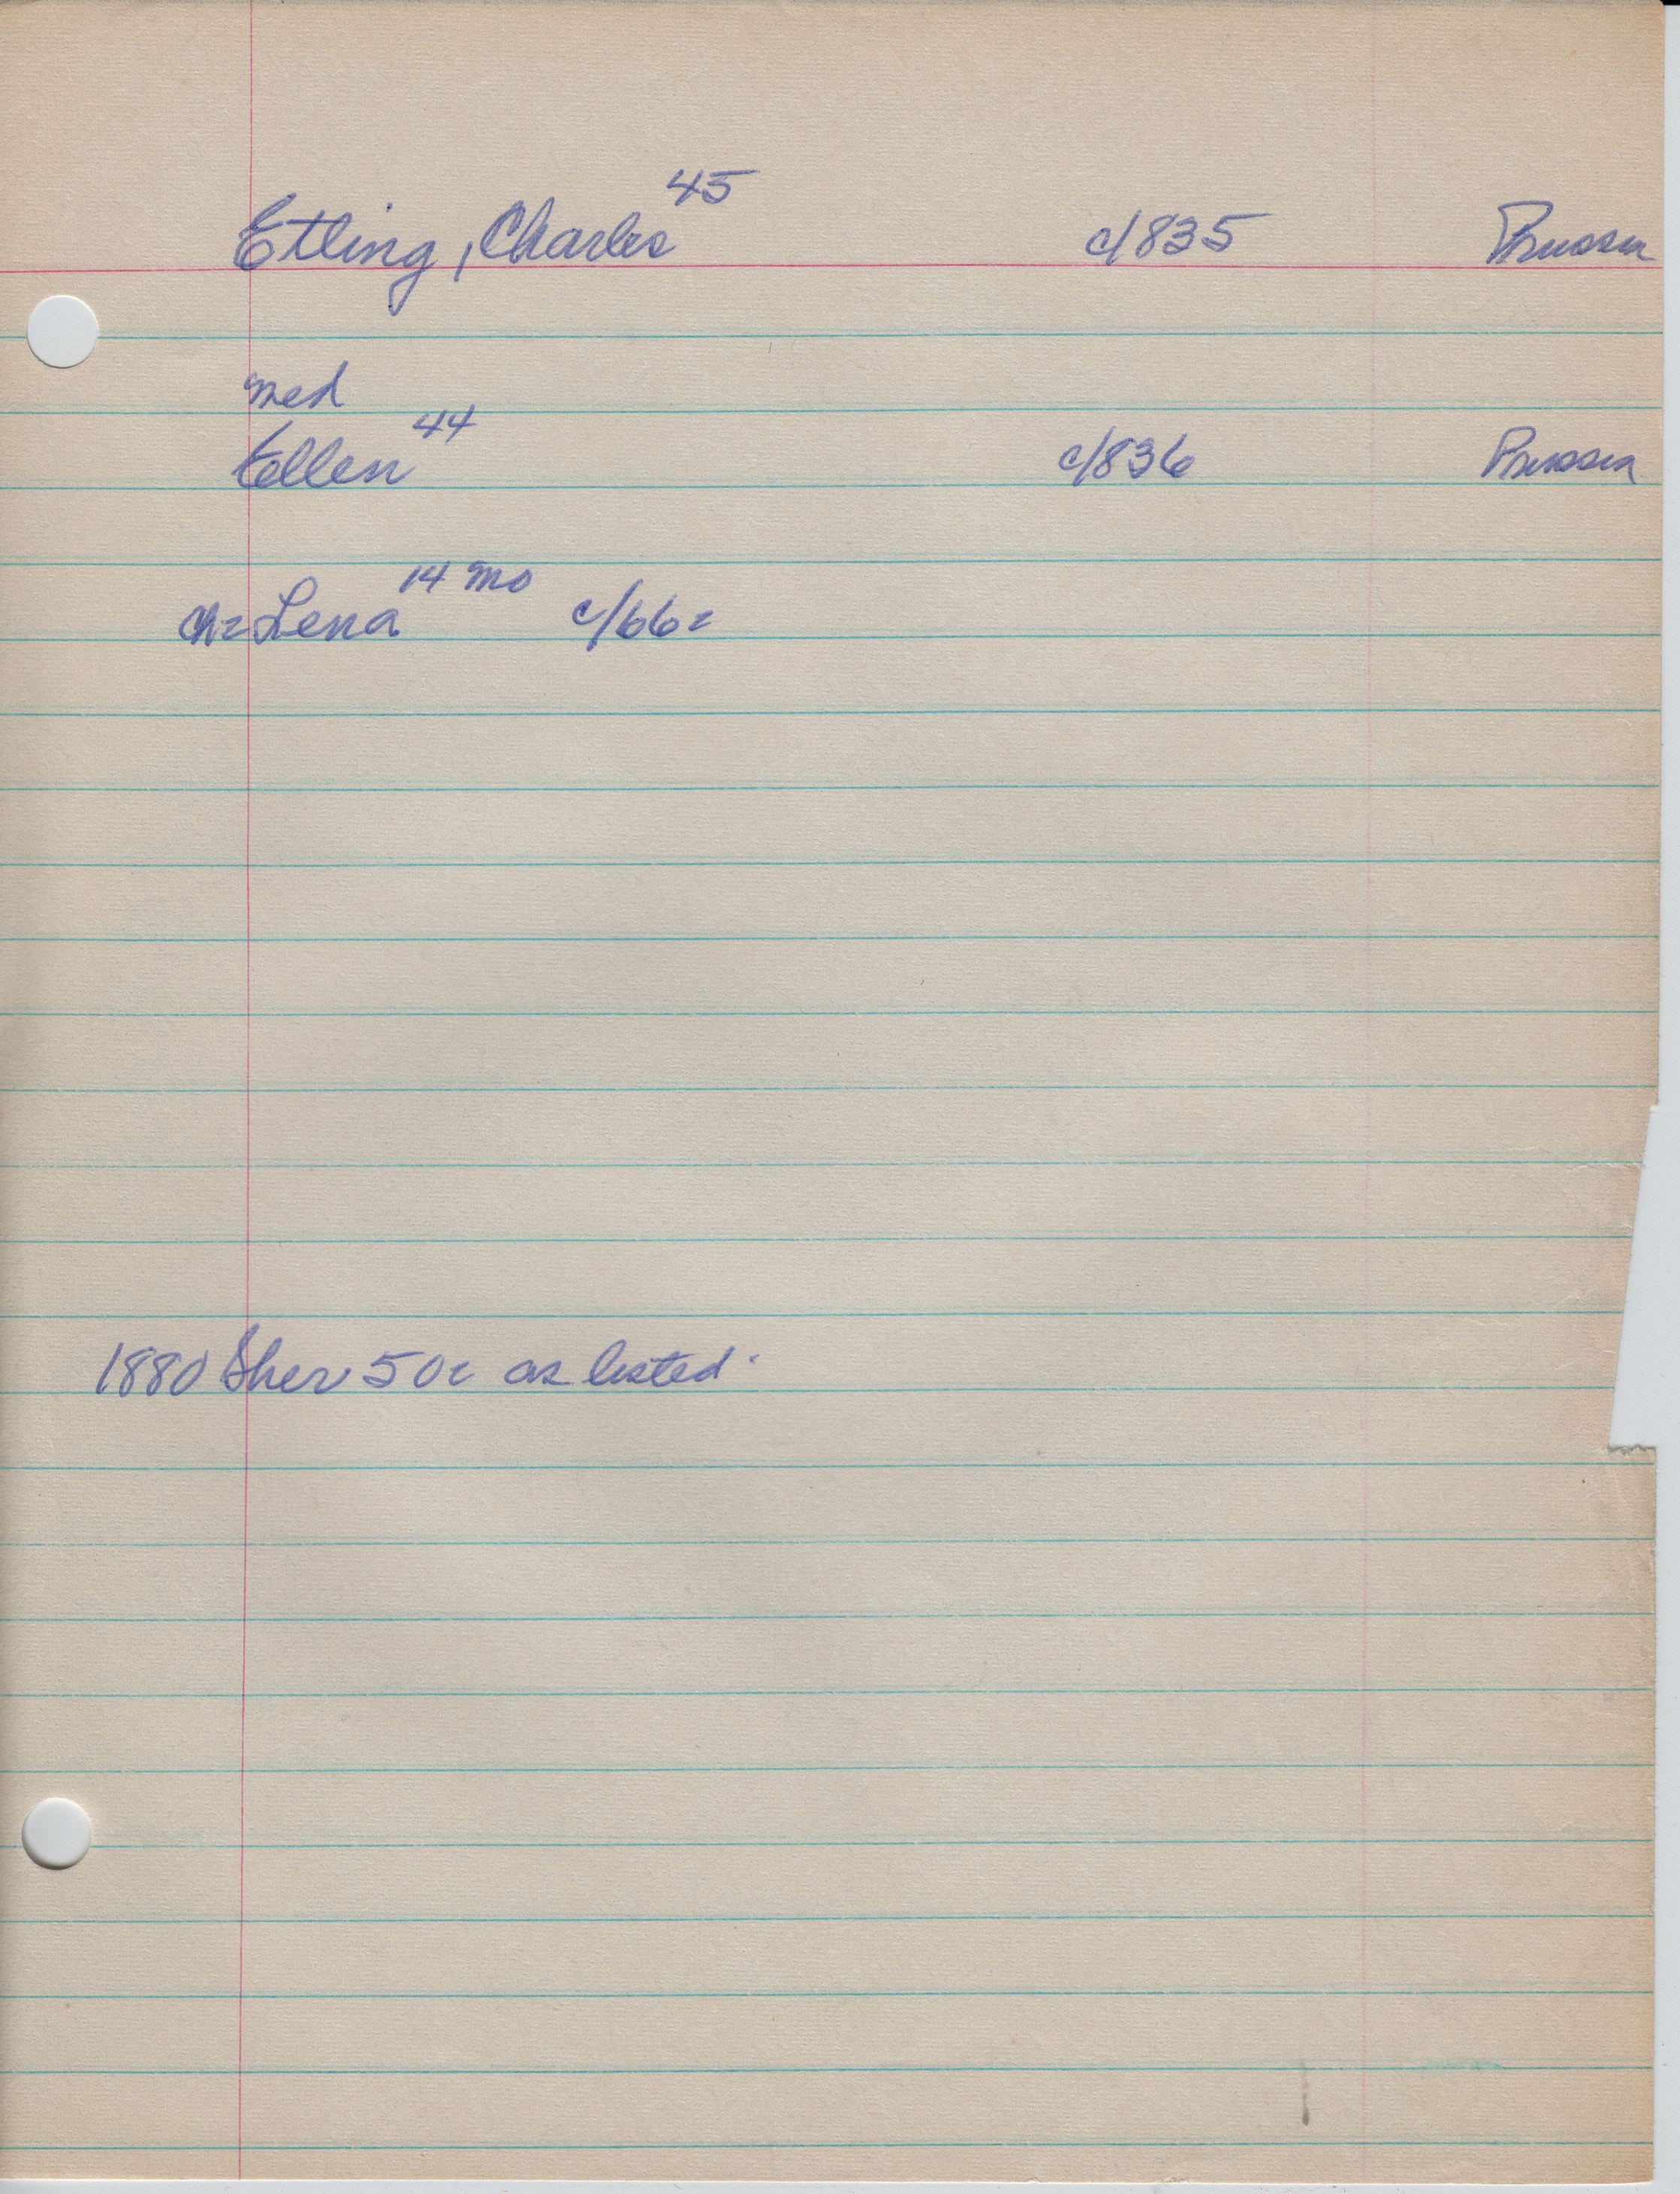 Etling, Charles 45 c/835 Prussia
med
Ellen 44 c/836 Prussia
ch= Lena 14 mo c/66=
1880 Sher 50c as listed